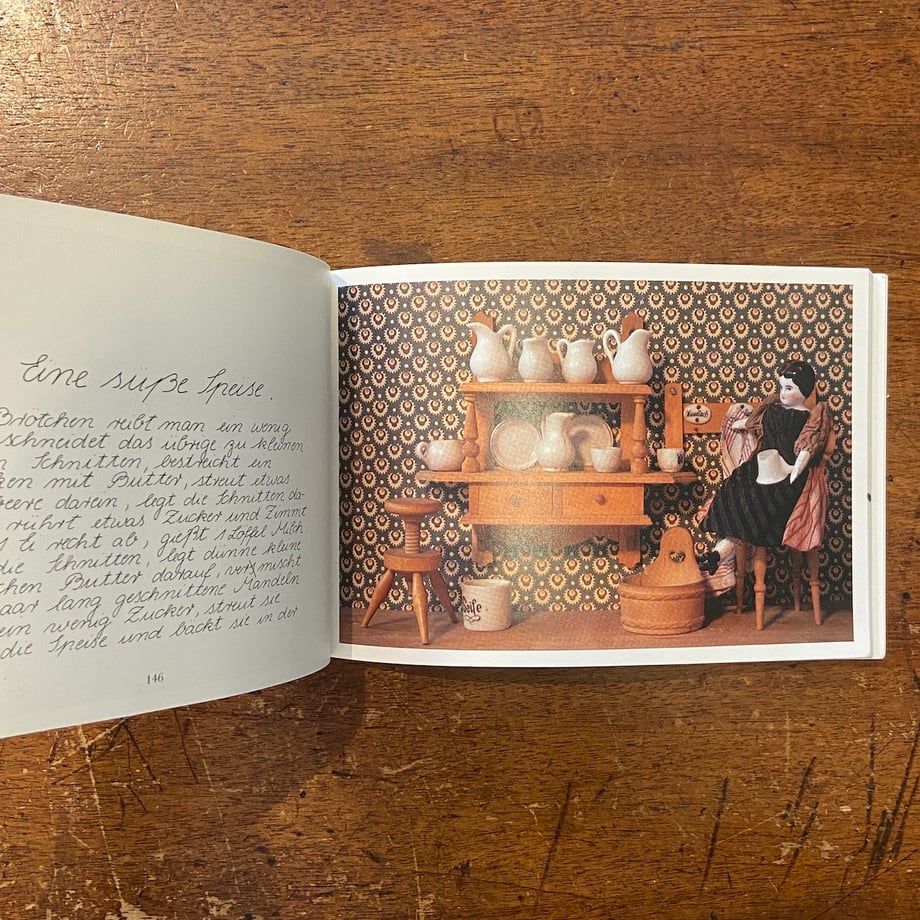 Eine süße Speise.
Brötchen reibt man ein wenig
schneidet das übrige zu kleinen
n Schnitten, bestreicht ein
ken mit Butter, streut etwas
beere darein, legt die Schnitten da-
rührt etwas Zucker und Zimmt
s Ei recht ab, gießt 1 Löffel Milch
die Schnitten, legt dünne kleine
chen Butter darauf, vermischt
aar lang geschnittene Mandeln
ein wenig Zucker, streut sie
die Speise und bäckt sie in der
146
Seife